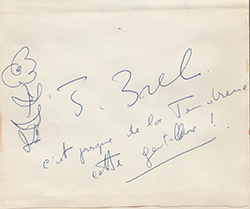 J. Brel
c'est presque de la Tendresse
cette gentillesse !